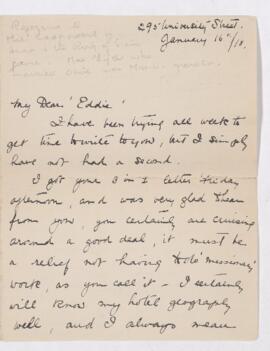 295 University Street.
January 16th/18.
My Dear 'Eddie'
I have been trying all week to
get time to write to you, but I simply
have not had a second.
I got your 3 in 1 letter Friday
afternoon, and was very glad to hear
from you, you certainly are cruising
around a good deal, it must be
a relief not having to do 'missionary'
work, as you call it - I certainly
will know my hotel geography
well, and I always mean